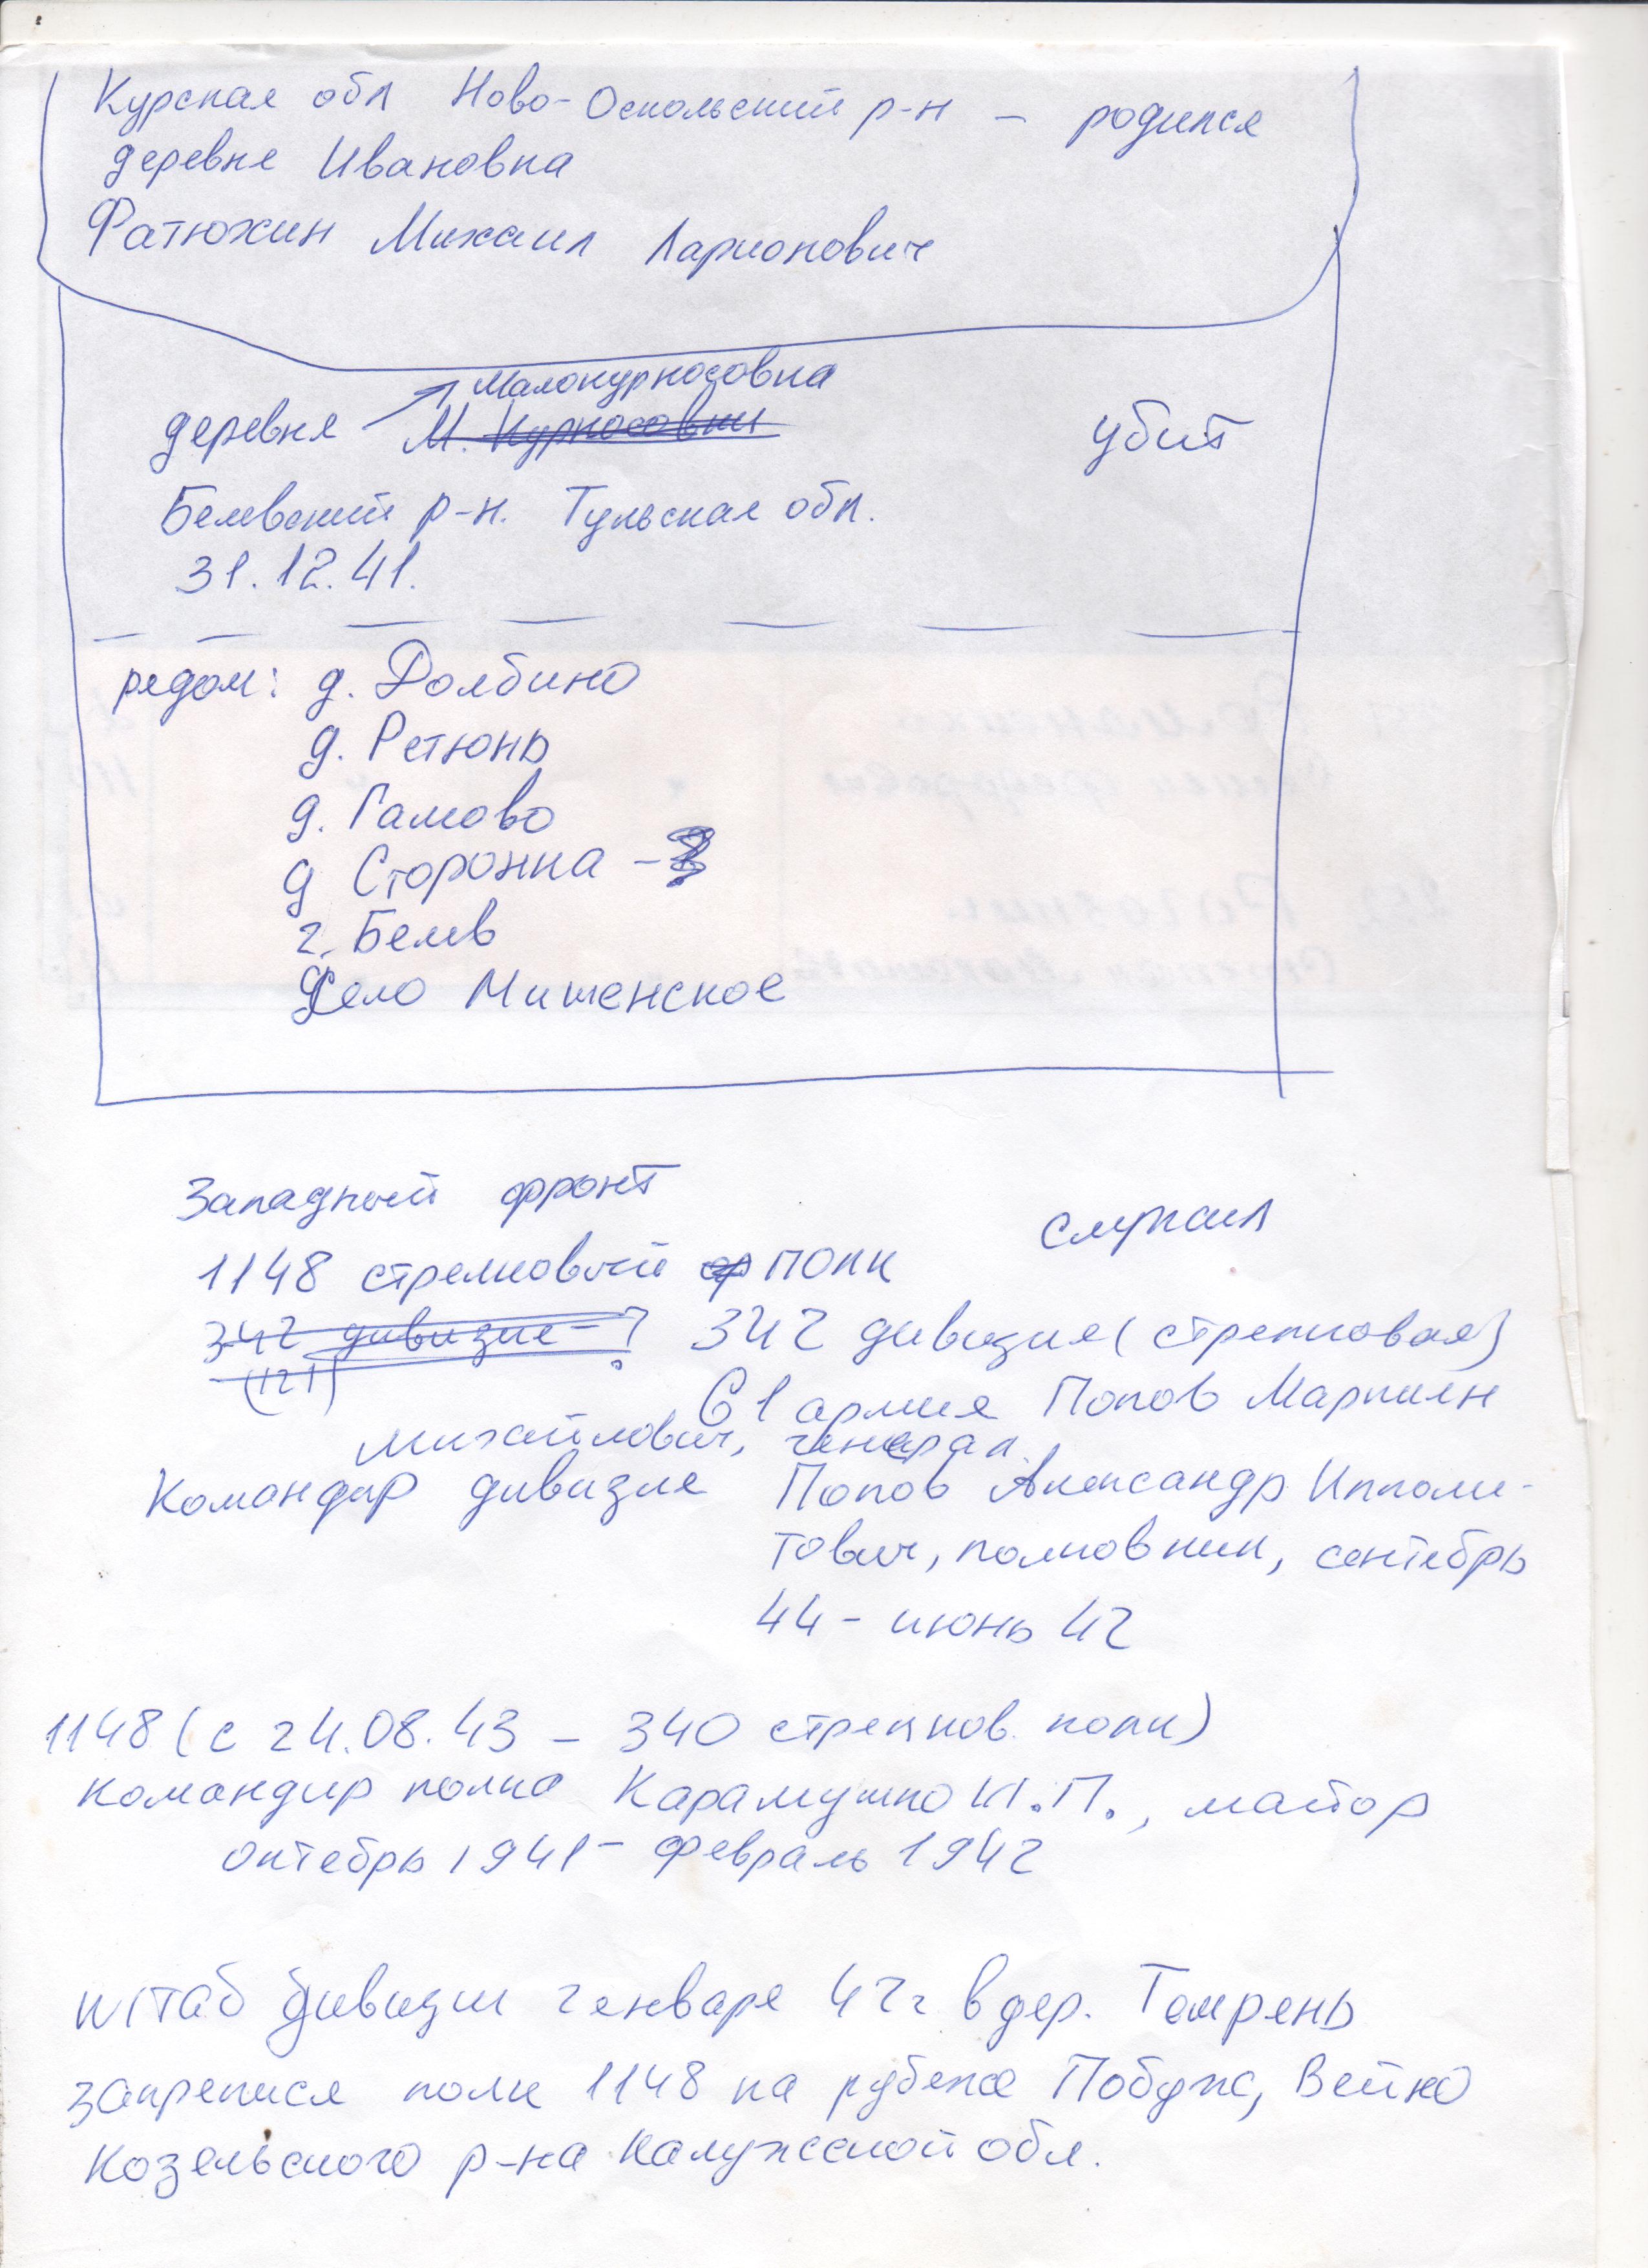 Курская обл Ново-Оскольский р-н – родился
деревня Ивановка
Фатюхин Михаил Ларионович
Малокурносовка
деревня М. Курносовки убит
Белевский р-н. Тульская обл.
31.12.41.
рядом: д. Долбино
д. Ретюнь
д. Гамово
д Сторонка –
г. Белев
Село Мишенское
Западный фронт
служил
1148 стрелковый полк
342 дивизия – ? 342 дивизия (стрелковая)
(121)
61 армия Попов Маркиян
Михайлович, генерал.
Командир дивизия Попов Александр Ипполи-
тович, полковник, сентябрь
41 – июнь 42
1148 (с 24.08.43 – 340 стрелков. полк)
командир полка Карамушко И.П., майор
октябрь 1941 – февраль 1942
штаб дивизии 2 января 42 г в дер. Темрень
закрепился полк 1148 на рубеже Побуж, Вейно
Козельского р-на Калужской обл.